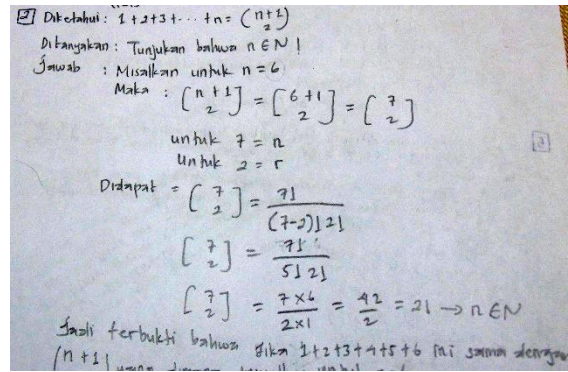 2 Diketahui : 1+2+3+...+n = (n+1 2)
Ditanyakan : Tunjukan bahwa n ∈ N !
Jawab : Misalkan untuk n = 6
Maka : [n+1 2] = [6+1 2] = [7 2]
untuk 7 = n
Untuk 2 = r
Didapat = [7 2] = 7! / (7-2)! 2!
[7 2] = 7! / 5! 2!
[7 2] = 7×6 / 2×1 = 42 / 2 = 21 → n ∈ N
Jadi terbukti bahwa Jika 1+2+3+4+5+6 ini sama dengan
(n+1